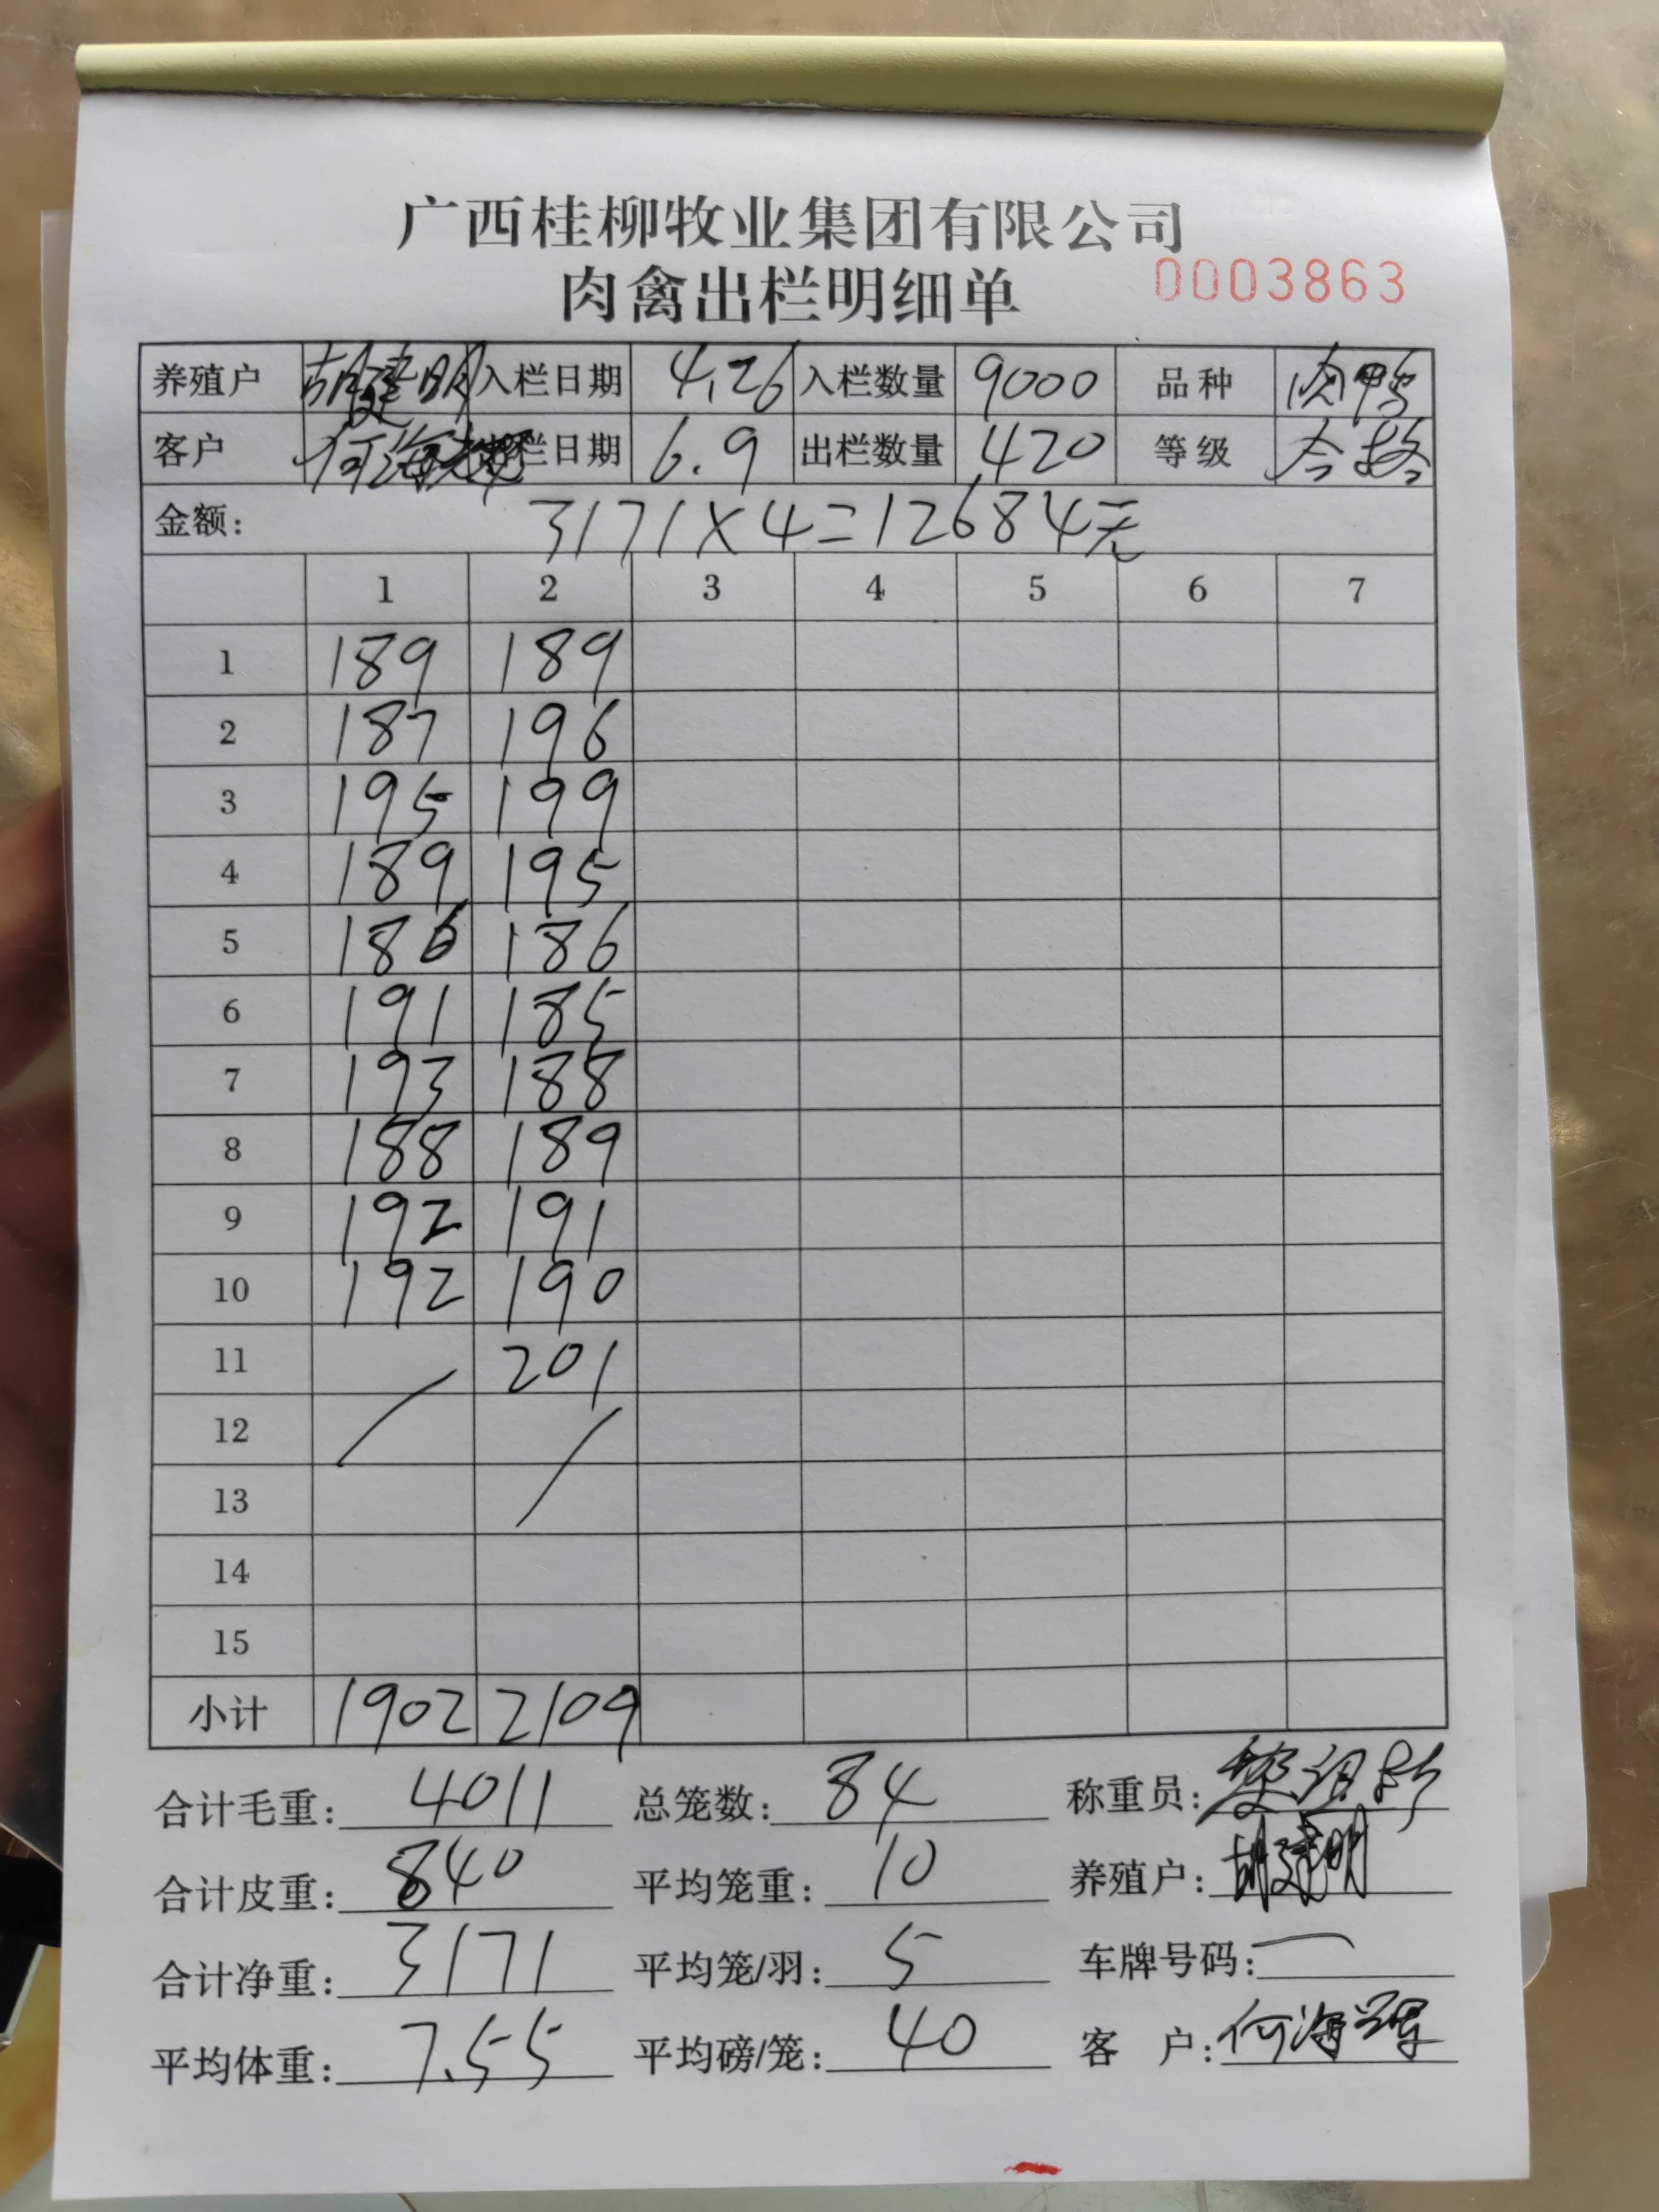 广西桂柳牧业集团有限公司
肉禽出栏明细单 0003863
养殖户 胡建明 入栏日期 4.26 入栏数量 9000 品种 肉鸭
客户 何海 栏日期 6.9 出栏数量 420 等级 合格
金额: 3171×4=12684元
1 2 3 4 5 6 7
1 189 189
2 187 196
3 195 199
4 189 195
5 186 186
6 191 185
7 193 188
8 188 189
9 192 191
10 192 190
11 201
12
13
14
15
小计 1902 2109
合计毛重: 4011 总笼数: 84 称重员:
合计皮重: 840 平均笼重: 10 养殖户: 胡建明
合计净重: 3171 平均笼/羽: 5 车牌号码: 一
平均体重: 7.55 平均磅/笼: 40 客 户: 何海